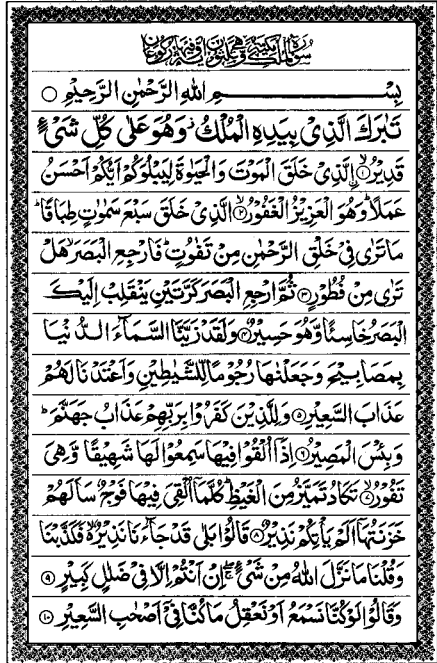 سورة الملك مكية وهي ثلثون اية وفيها ركوعان
بِسْمِ اللهِ الرَّحْمٰنِ الرَّحِيْمِ ○
تَبٰرَكَ الَّذِيْ بِيَدِهِ الْمُلْكُ ۡ وَهُوَ عَلٰى كُلِّ شَيْءٍ
قَدِيْرُۨ ۙ﴿۱﴾ الَّذِيْ خَلَقَ الْمَوْتَ وَالْحَيٰوةَ لِيَبْلُوَكُمْ اَيُّكُمْ اَحْسَنُ
عَمَلًا ؕ وَهُوَ الْعَزِيْزُ الْغَفُوْرُ ۙ﴿۲﴾ الَّذِيْ خَلَقَ سَبْعَ سَمٰوٰتٍ طِبَاقًا ؕ
مَا تَرٰى فِيْ خَلْقِ الرَّحْمٰنِ مِنْ تَفٰوُتٍ ؕ فَارْجِعِ الْبَصَرَ ۙ هَلْ
تَرٰى مِنْ فُطُوْرٍ ﴿۳﴾ ثُمَّ ارْجِعِ الْبَصَرَ كَرَّتَيْنِ يَنْقَلِبْ اِلَيْكَ
الْبَصَرُ خَاسِئًا وَّهُوَ حَسِيْرٌ ﴿۴﴾ وَلَقَدْ زَيَّنَّا السَّمَآءَ الدُّنْيَا
بِمَصَابِيْحَ وَجَعَلْنٰهَا رُجُوْمًا لِّلشَّيٰطِيْنِ وَاَعْتَدْنَا لَهُمْ
عَذَابَ السَّعِيْرِ ﴿۵﴾ وَلِلَّذِيْنَ كَفَرُوْا بِرَبِّهِمْ عَذَابُ جَهَنَّمَ ؕ
وَبِئْسَ الْمَصِيْرُ ﴿۶﴾ اِذَاۤ اُلْقُوْا فِيْهَا سَمِعُوْا لَهَا شَهِيْقًا وَّهِيَ
تَفُوْرُ ۙ﴿۷﴾ تَكَادُ تَمَيَّزُ مِنَ الْغَيْظِ ؕ كُلَّمَاۤ اُلْقِيَ فِيْهَا فَوْجٌ سَاَلَهُمْ
خَزَنَتُهَاۤ اَلَمْ يَاْتِكُمْ نَذِيْرٌ ﴿۸﴾ قَالُوْا بَلٰى قَدْ جَآءَنَا نَذِيْرٌ ۙ فَكَذَّبْنَا
وَقُلْنَا مَا نَزَّلَ اللهُ مِنْ شَيْءٍ ۚۖ اِنْ اَنْتُمْ اِلَّا فِيْ ضَلٰلٍ كَبِيْرٍ ﴿۹﴾
وَقَالُوْا لَوْ كُنَّا نَسْمَعُ اَوْ نَعْقِلُ مَا كُنَّا فِيْۤ اَصْحٰبِ السَّعِيْرِ ﴿۱۰﴾